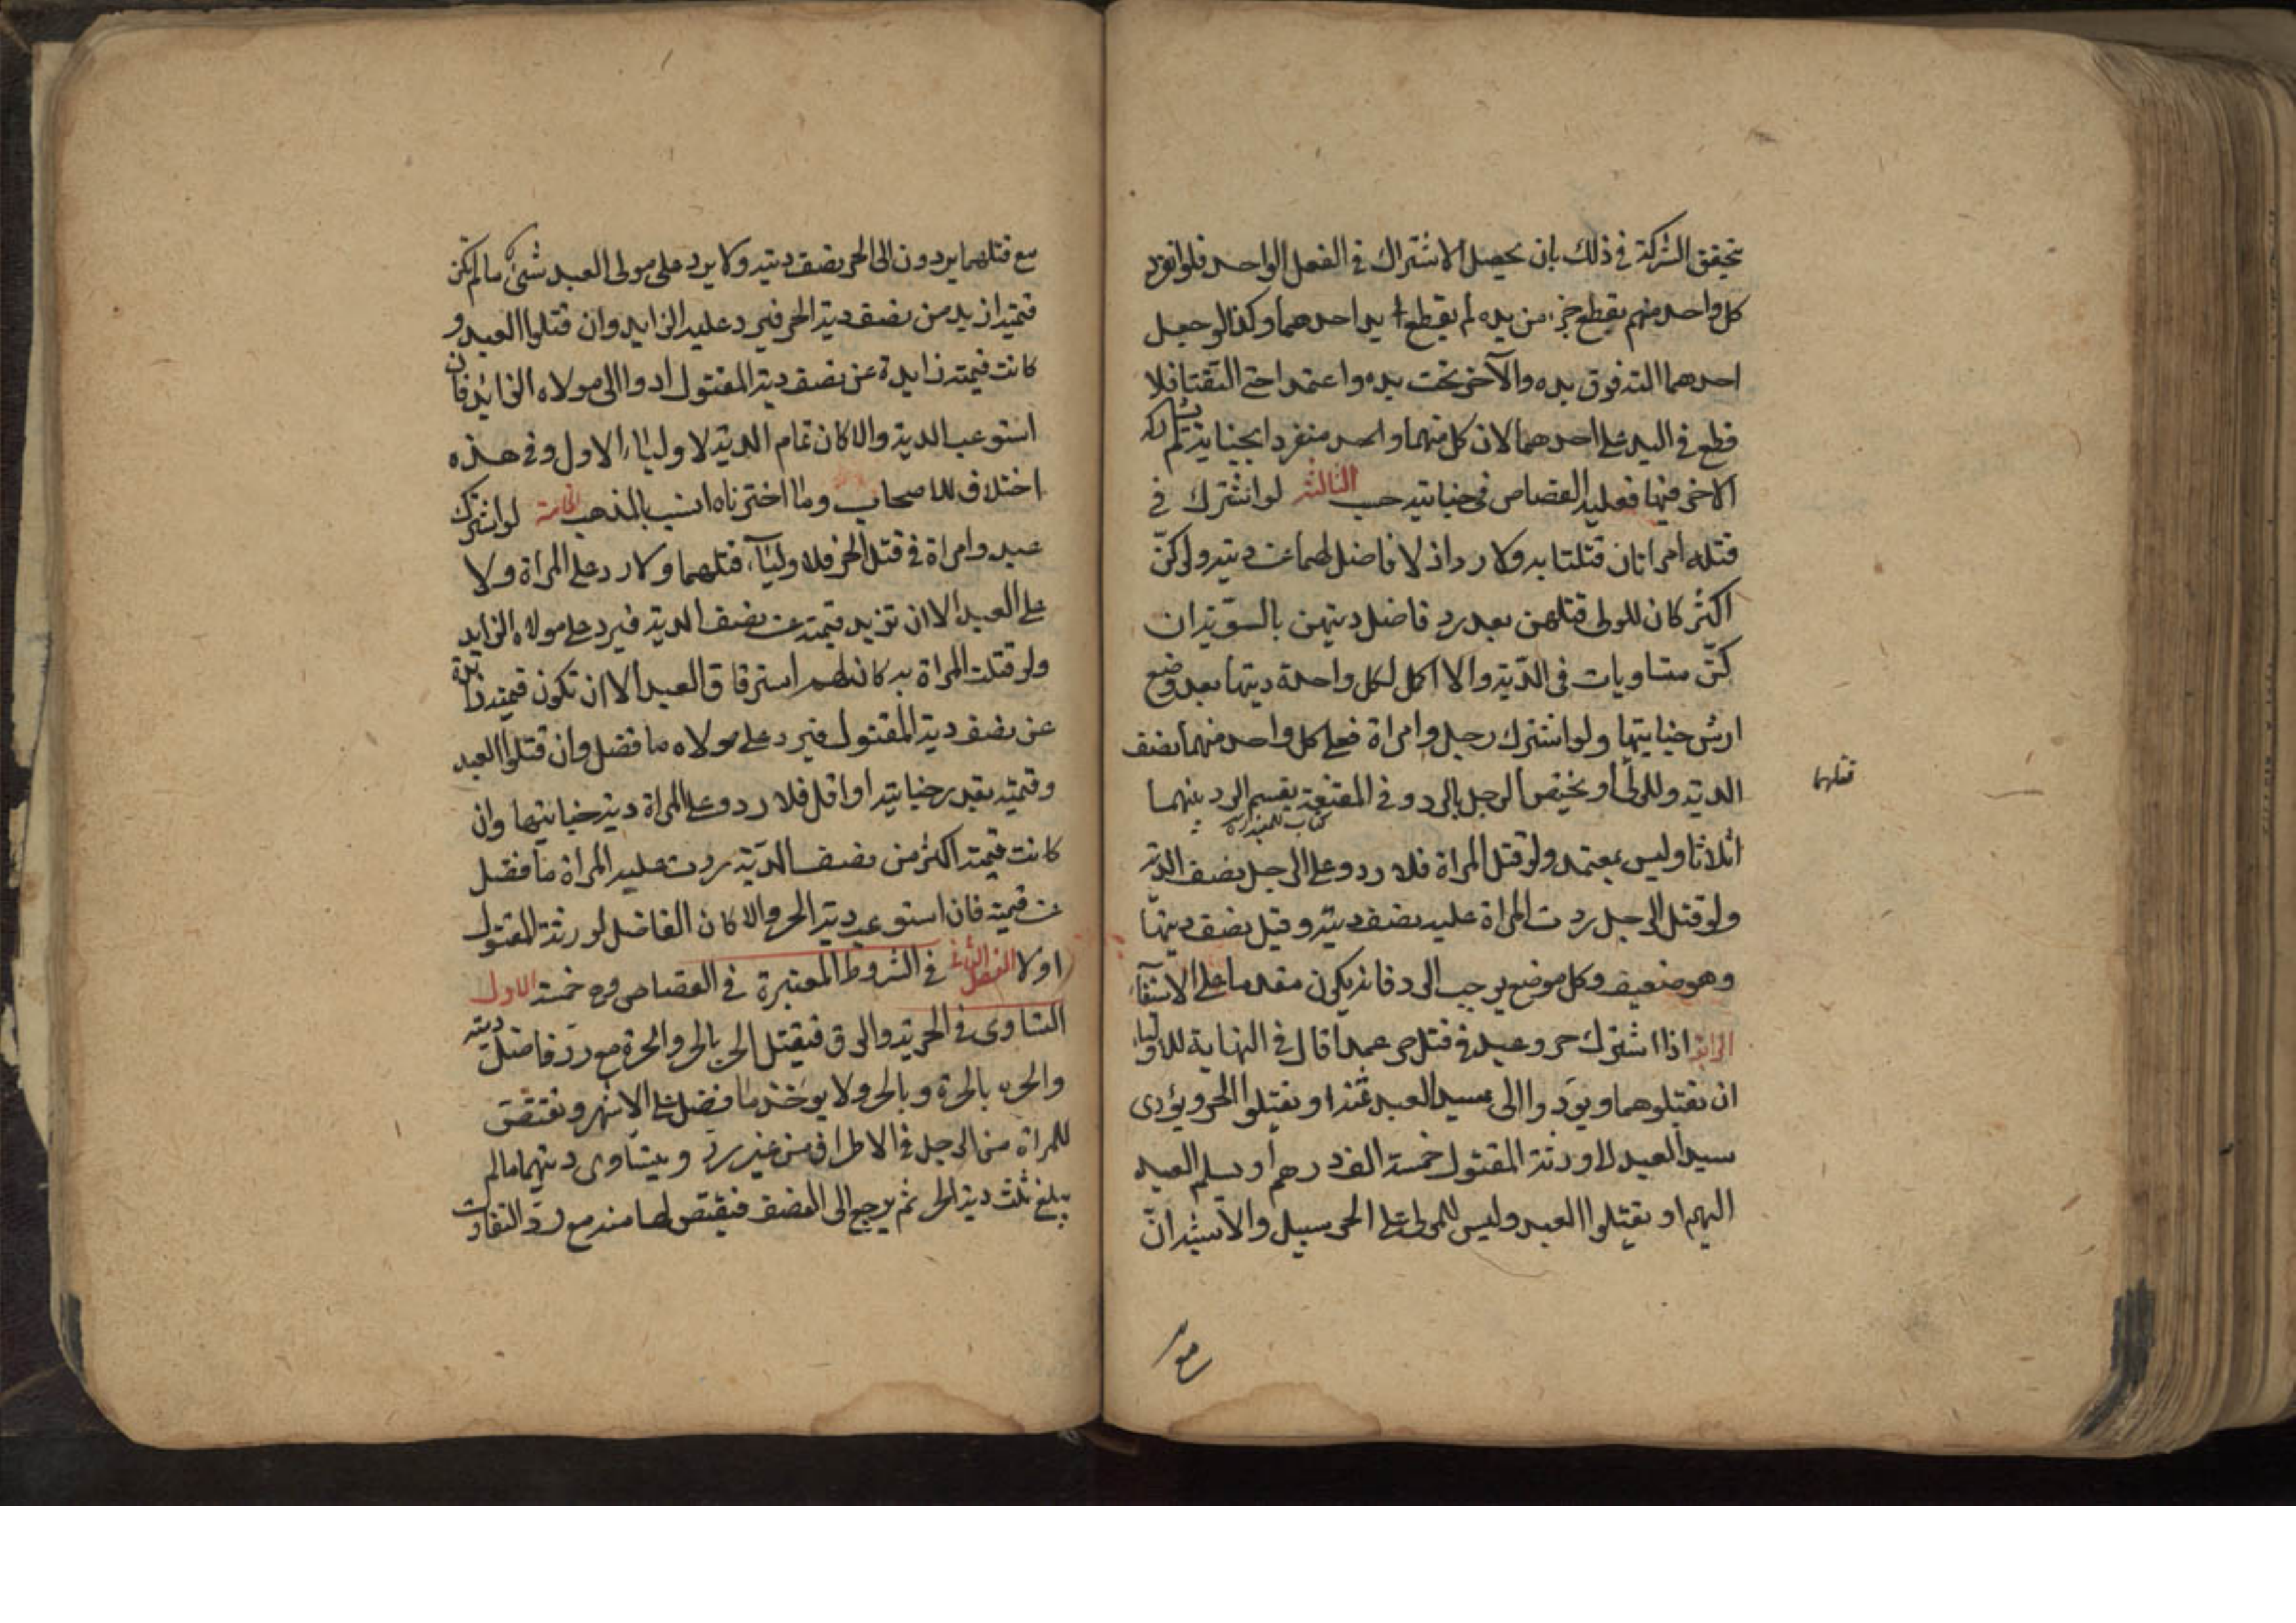 تتحقق الشركة في ذلك بان يحصل الاشتراك في الفعل الواحد فلو انفرد
كل واحد منهم بقطع جزء من يده لم يقطع يد احدهما وكذا لو جعل
احدهما الته فوق يده والآخر تحت يده واعتمدا حتى التقتا فلا
قطع في اليد على احدهما لان كل منهما واحد منفرد بجناية لم يشاركه
الاخر فيها فعليه القصاص في جنايته حسب الثالثة لو اشترك في
قتله امراتان قتلتا به ولا رد اذ لا فاضل لهما عن ديته ولو كنّ
اكثر كان للولى قتلهن بعد رد فاضل ديتهن بالسوية ان
كنّ متساويات في الدّية والا اكمل لكل واحدة ديتها بعد وضع
ارش جنايتها ولو اشترك رجل وامراة فعلى كل واحد منهما نصف
الدية وللولى او يختص الرجل بالرد وفي المقنعة يقسم الرد بينهما
قتلهما
كتاب للمفيد
اثلاثا وليس بمعتمد ولو قتل المراة فلا رد وعلى الرجل نصف الدية
ولو قتل الرجل ردت المراة عليه نصف ديته وقيل نصف ديتها
وهو ضعيف وكل موضع يوجب الرد فانه يكون مقدما على الاستيفاء
الرابعة اذا اشترك حر وعبد في قتل حر عمدا قال في النهاية للاولياء
ان يقتلوهما ويؤدوا الى سيد العبد ثمنه او يقتلوا الحر ويؤدى
سيد العبد لاورثة المقتول خمسة الف درهم او يسلم العبد
اليهم او يقتلوا العبد وليس للمولى على الحر سبيل والاشبه انّ
مع
مع قتلهما يردون الى الحر نصف ديته ولا يرد على مولى العبد شئ ما لم تكن
قيمته ازيد من نصف دية الحر فيرد عليه الزايد وان قتلوا العبد و
كانت قيمته زايدة عن نصف دية المقتول ادوا الى مولاه الزايد فان
استوعب الدية والا كان تمام الدية لاولياء الاول وفي هذه
اختلاف للاصحاب وما اخترناه انسب بالمذهب الخامسة لو اشترك
عبد وامراة في قتل الحر فللاولياء قتلهما ولا رد على المراة ولا
على العبد الا ان تزيد قيمته عن نصف الدية فيرد على مولاه الزايد
ولو قتلت المراة به كان لهم استرقاق العبد الا ان تكون قيمته زايدة
عن نصف دية المقتول فيرد على مولاه ما فضل وان قتلوا العبد
وقيمته بقدر جنايته او اقل فلا رد وعلى المراة دية جنايتها وان
كانت قيمته اكثر من نصف الدّية ردت عليه المراة ما فضل
عن قيمته فان استوعب دية الحر والا كان الفاضل لورثة المقتول
اولا الفصل الثاني في الشروط المعتبرة في القصاص وهي خمسة الاول
التساوى في الحرية والرق فيقتل الحر بالحر والحرة مع ردّ فاضل ديته
والحرة بالحرة وبالحر ولا يوخذ ما فضل على الاشهر وتقتص
للمراة من الرجل في الاطراف من غير ردّ ويتساوى ديتهما ما لم
يبلغ ثلث دية الحر ثم يرجع الى النصف فيقتص لها منه مع ردّ التفاوت